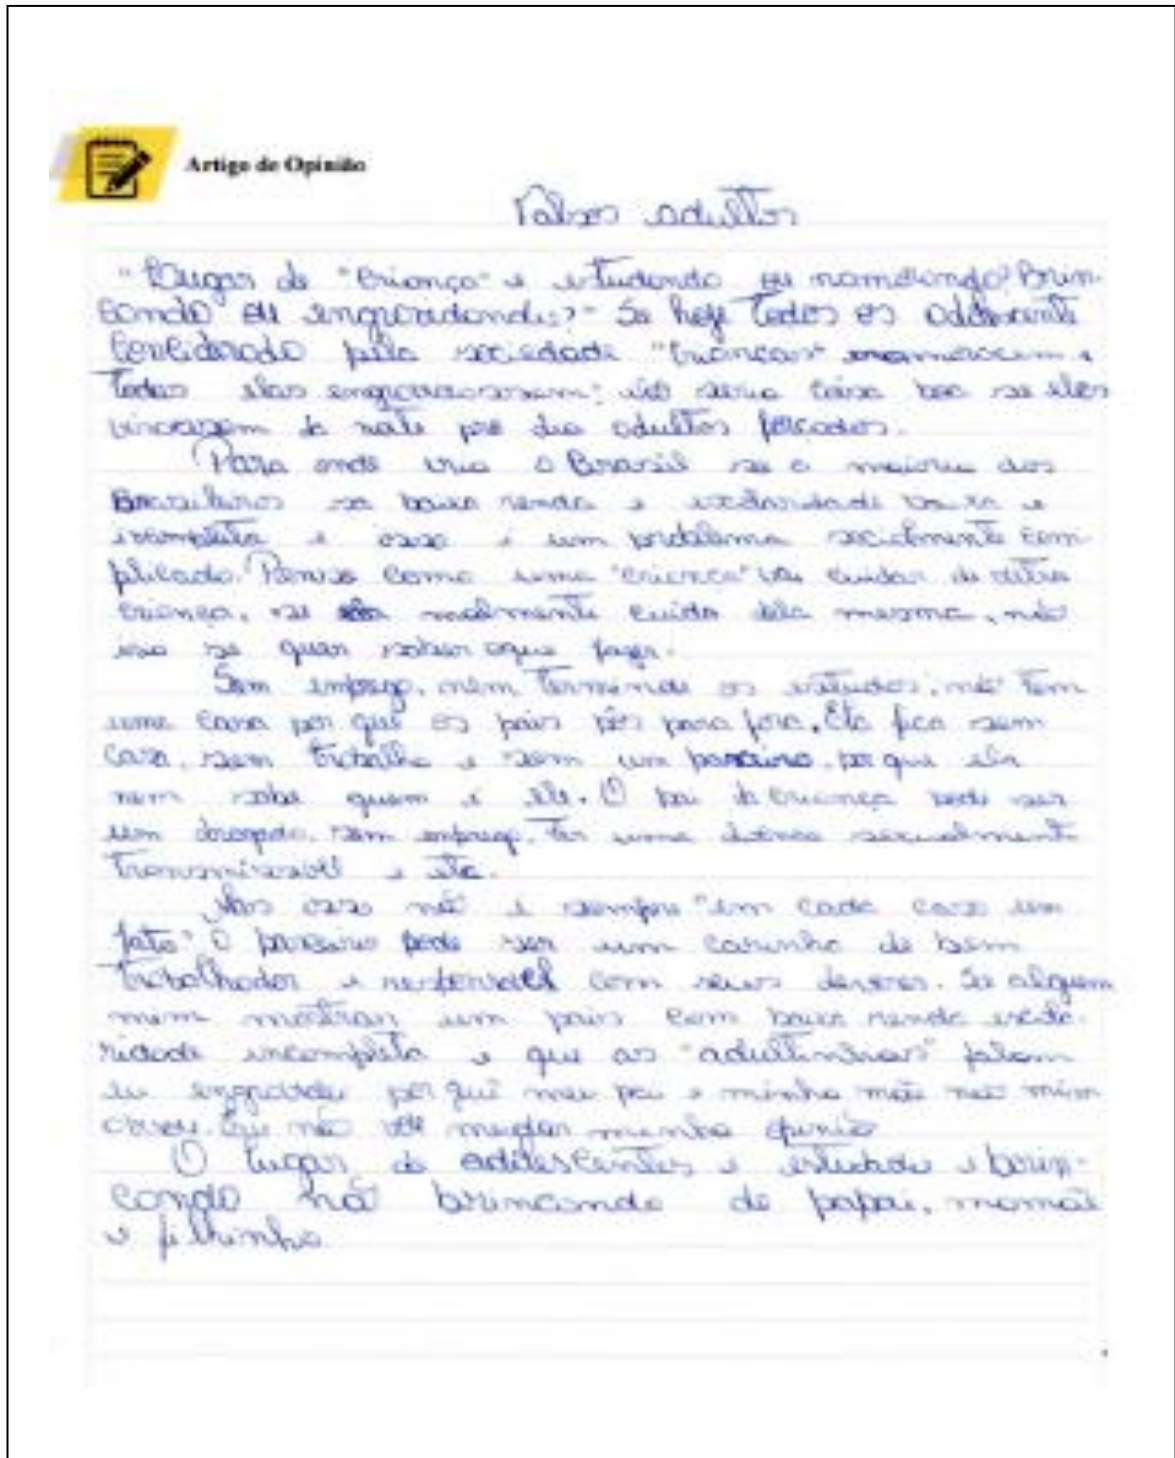 Artigo de Opinião
Falsos adultos
"Lugar de "criança" e estudando ou namorando? Brin-
cando ou engravidando?" Se hoje todos os
considerado pela sociedade "crianças" e
todas elas engravidassem; não seria coisa boa se eles
da noite pro dia adultos forçados.
Para onde iria o Brasil se a maioria dos
Brasileiros so baixa renda e escolaridade baixa e
incompleta e esse é um problema socialmente com-
plicado. Penso como uma "criança" vai cuidar de outra
criança, se ela malmente cuida dela mesma, não
se quer saber oque fazer.
Sem emprego, nem os estudos, não tem
uma casa por que os pais pôs para fora. Ela fica sem
casa, sem trabalho e sem um parceiro, porque ela
nem sabe quem é ele. O pai da criança pode ser
um drogado, sem emprego, ter uma doença sexualmente
e etc.
não é sempre "em cada caso um
fato" O pode ser um carinha de bem
trabalhador e com seus deveres. Se alguem
um pais com baixa renda escola-
ridade incompleta e que as "adultinhas" falam
eu engravidei por quê meu pai e minha mãe não mim
Eu não vou mudar minha
O lugar de adolescentes e estudado e brin-
cando não brincando de papai, mamãe
e filhinho